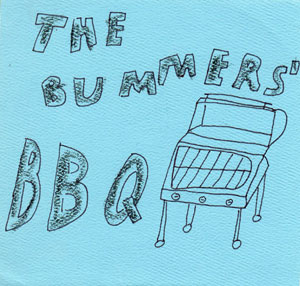 THE
BUMMERS'
BBQ